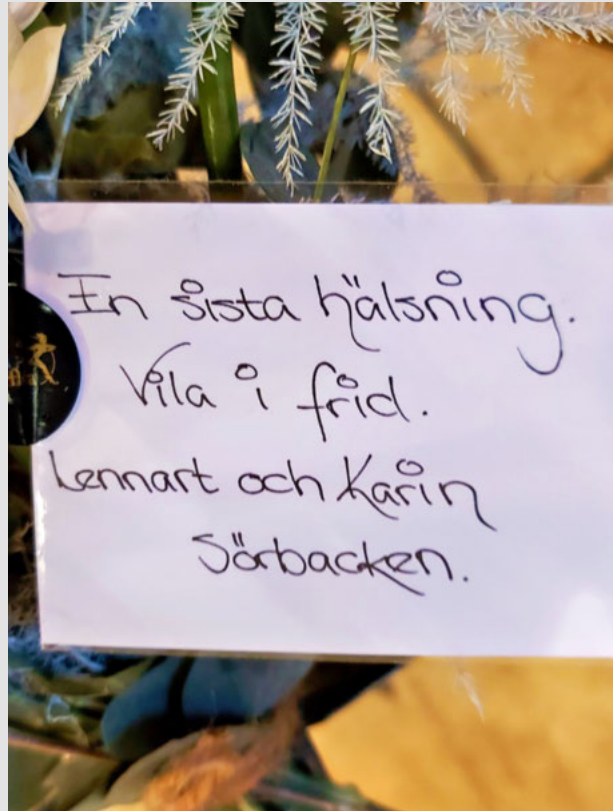 En sista hälsning.
Vila i frid.
Lennart och Karin
Sörbacken.